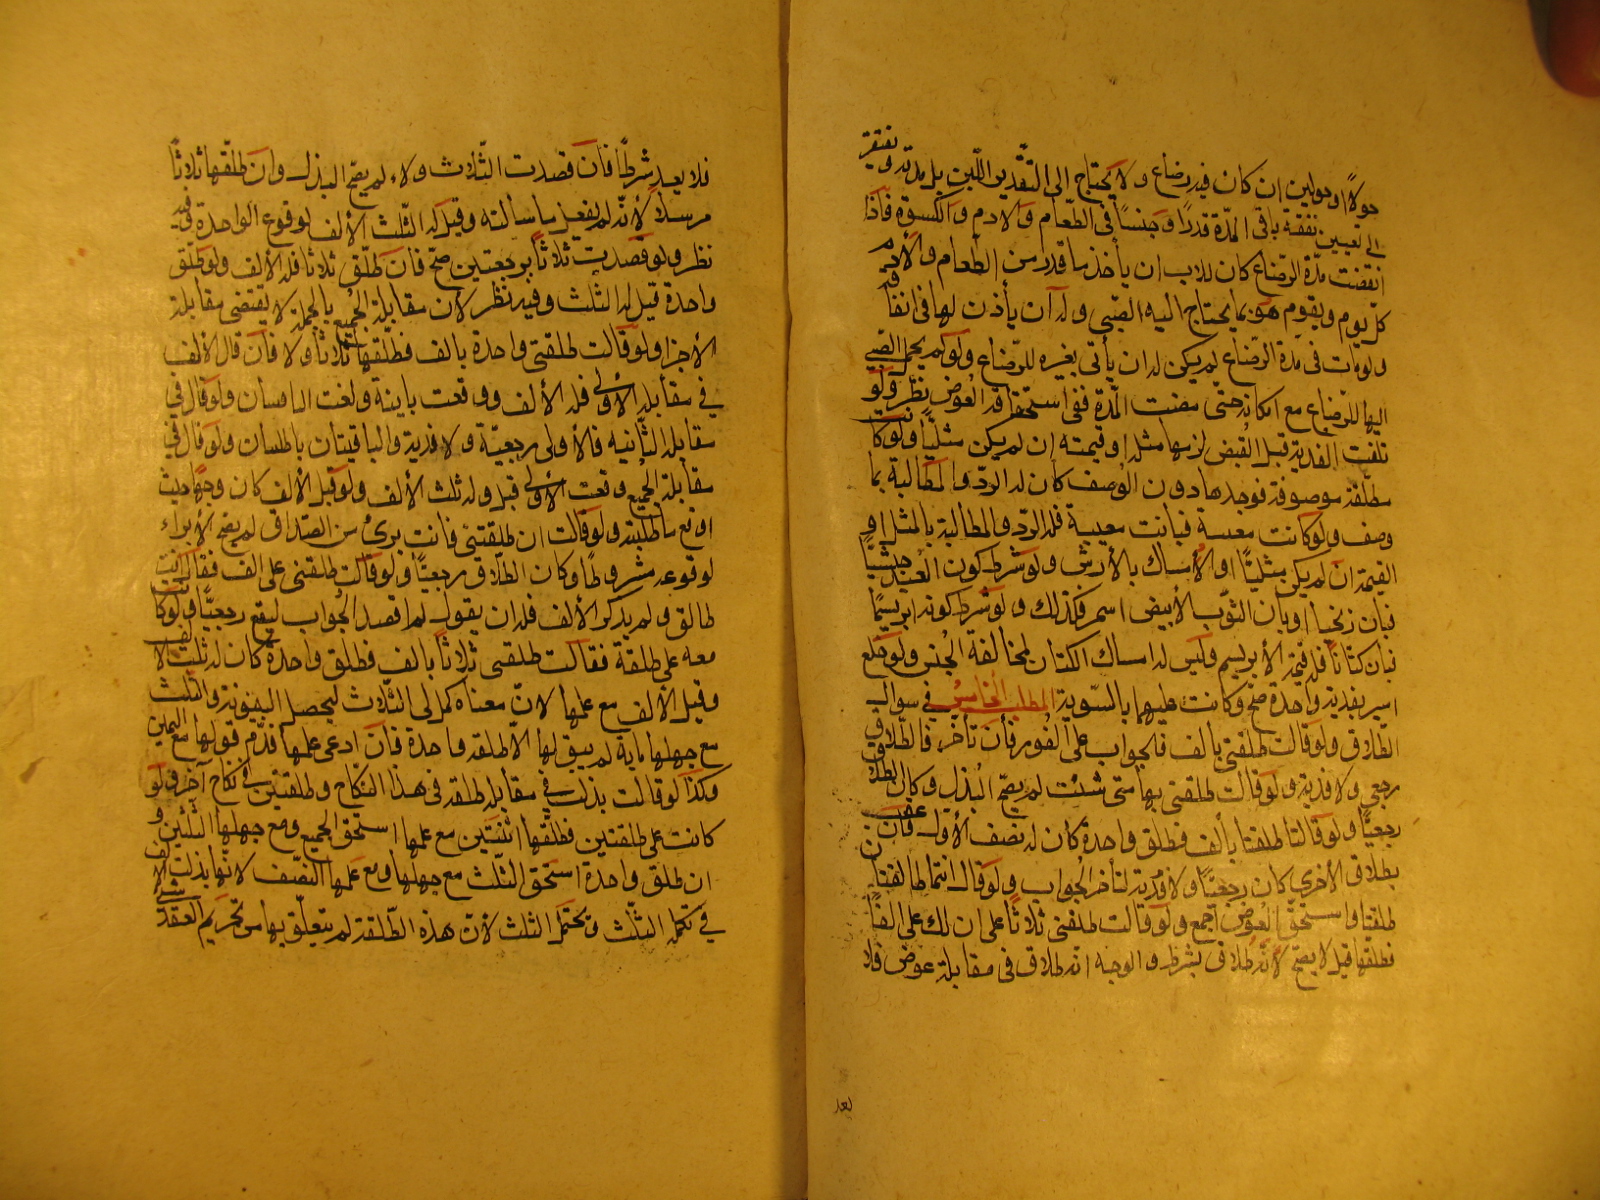 حولاً او حولين ان كان فيه رضاع ولا يحتاج الى التقدير اللبن بل مدته ويفتقر
الى تعيين نفقة باقى المدّة قدرًا وجنسًا فى الطّعام والادم والكسوة فاذا
انقضت مدّة الرضاع كان للاب ان يأخذ ما قدّر من الطّعام والأدم
كل يوم ويقوم هو بما يحتاج اليه الصّبي وله ان يأذن لها فى انفاقه
ولو مات فى مدة الرّضاع لم يكن له ان يأتى بغيره للرّضاع ولو لم يحمل الصّبي
اليها للرّضاع مع امكانه حتّى مضت المدّة ففى استحقاقه العوض نظر ولو
تلفت الفدية قبل القبض لزمها مثله او قيمته ان لم يكن مثليًّا ولو كانت
مطلقة موصوفة فوجدها دون الوصف كان له الردّ والمطالبة بما
وصف ولو كانت معينة فبانت معيبة فله الردّ والمطالبة بالمثل او
القيمة ان لم يكن مثليًّا او الأمساك بالأرش ولو شرط كون العبد حبشيًّا
فبان زنجيا او بان الثوب الأبيض اسمر فكذلك ولو شرط كونه ابريسمًا
فبان كتّانًا فله قيمة الأبريسم وليس له امساك الكتان لمخالفة الجنس ولو خلع
اثنتين بفدية واحدة صحّ وكانت عليهما بالسّوية المطلب الخامس فى سؤال
الطلاق ولو قالت طلقنى بالف فالجواب على الفور فان تأخر فالطّلاق
رجعي ولا فدية ولو قالت طلقنى بها متى شئت لم يصحّ البذل وكان الطّلاق
رجعيًّا ولو قالتا طلقنا بألف فطلق واحدة كان له نصف الألف فان عقب
بطلاق الأخرى كان رجعيًّا ولا فدية لتأخر الجواب ولو قال انتما طالقتان
طلقتا واستحقّ العوض اجمع ولو قالت طلقنى ثلاثًا على ان لك على الفًا
فطلقها قيل لا يصحّ لأنّه طلاق بشرط والوجه انه طلاق فى مقابلة عوض فلا
فلا يعد شرطًا فان قصدت الثّلاث ولاء لم يصحّ البذل وان طلّقها ثلاثًا
مرسلاً لأنّه لم يفعل ما سألته وقيل له الثّلث الألف لوقوع الواحدة وفيه
نظر ولو قصدت ثلاثاً برجعتين صحّ فان طلّق ثلاثا فله الألف ولو طلّق
واحدة قيل له الثّلث وفيه نظر لان مقابلة الجميع بالجملة لا يقتضى مقابلة
الأجزا ولو قالت طلقنى واحدة بالف فطلّقها ثلاثاً ولاء فان قال الألف
فى مقابلة الأولى فله الألف ووقعت باينة ولغت الباقيتان ولو قال فى
مقابلة الثّانيه فالأولى رجعيّة ولا فدية والباقيتان باطلتان ولو قال فى
مقابلة الجميع وقعت الأولى قيل وله ثلث الألف ولو قيل الألف كان وجهًا حيث
اوقع ما طلبته ولو قالت ان طلقتنى فانت برئ من الصّداق لم يصحّ الأبراء
لوقوعه مشروطًا وكان الطّلاق رجعيًّا ولو قالت طلقنى على الف فقال انت
طالق ولم يذكر الألف فله ان يقول لم اقصد الجواب ليقع رجعيًّا ولو كانت
معه على طلقة فقالت طلقنى ثلاثًا بالف فطلق واحدة كان له ثلث الألف
وقيل الألف مع علمها لانّ معناه كمل لى الثّلاث ليحصل البينونة والثّلث
مع جهلها بانه لم يبق لها الاّ طلقة واحدة فان ادعى علمها قدّم قولها مع اليمين
وكذا لو قالت بذلت فى مقابلة طلقة فى هذا النكاح وطلقتين فى نكاح آخر ولو
كانت على طلقتين فطلّقها اثنتين مع علمها استحق الجميع ومع جهلها الثلثين و
ان طلق واحدة استحق الثّلث مع جهلها ومع علمها النّصف لانها بذلت الألف
فى تكملة الثلاث ويحتمل الثلث لأنّ هذه الطّلقة لم يتعلّق بها من تحريم العقد شئ